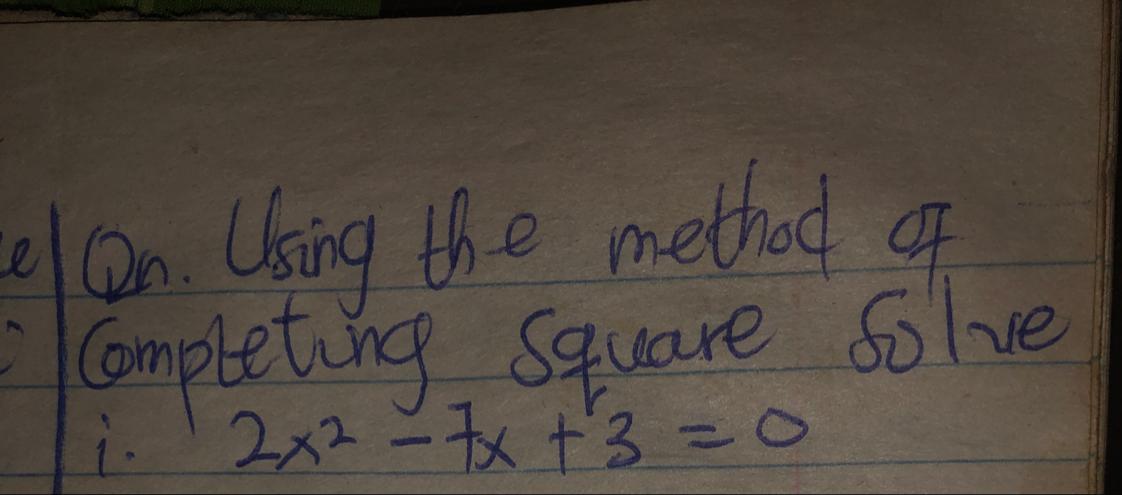 Qn. Using the method of
Completing Square Solve
i. 2x² - 7x + 3 = 0